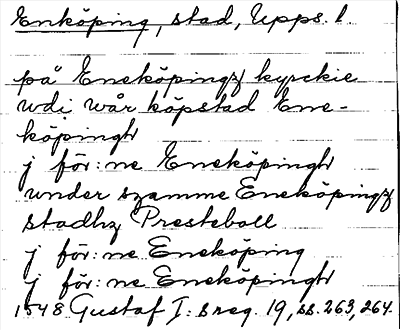 Enköping, stad, Upps. l.
på Eneköpingz kyrckie
udi wår köpstad Ene-
köpingh
j för:ne Eneköpingh
under szamme Eneköpingz
stadhz Presteboll
j för:ne Eneköping
j för:ne Eneköpingh
1548 Gustaf I: s reg. 19, ss. 263, 264.